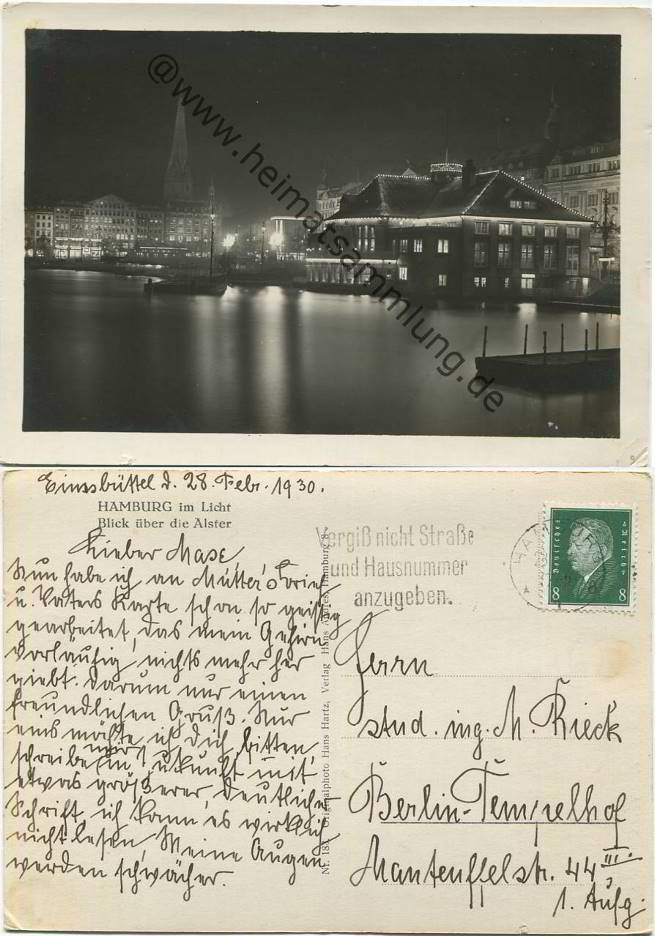 @www.heimatsammlung.de
Eimsbüttel d. 28. Febr. 1930.
HAMBURG im Licht
Blick über die Alster
Lieber Maxe
Nun habe ich an Mutter's Brief
u. Vaters Karte schon so geistig
gearbeitet, das mein Gehirn
vorläufig nichts mehr her
giebt. Darum nur einen
freundlichen Gruß. Nur
eins möchte ich dich bitten,
schreibe mir in Zukunft mit
etwas größerer, deutlicher
Schrift, ich kann es wirklich
nicht lesen, Meine Augen
werden schwächer.
Originalphoto Hans Hartz, Verlag Hans Hamburg 8
Vergiß nicht Straße
und Hausnummer
anzugeben.
Deutsches Reich
8 8
Herrn
stud. ing. M. Rieck
Berlin-Tempelhof
Manteuffelstr. 44 III.
1. Aufg.